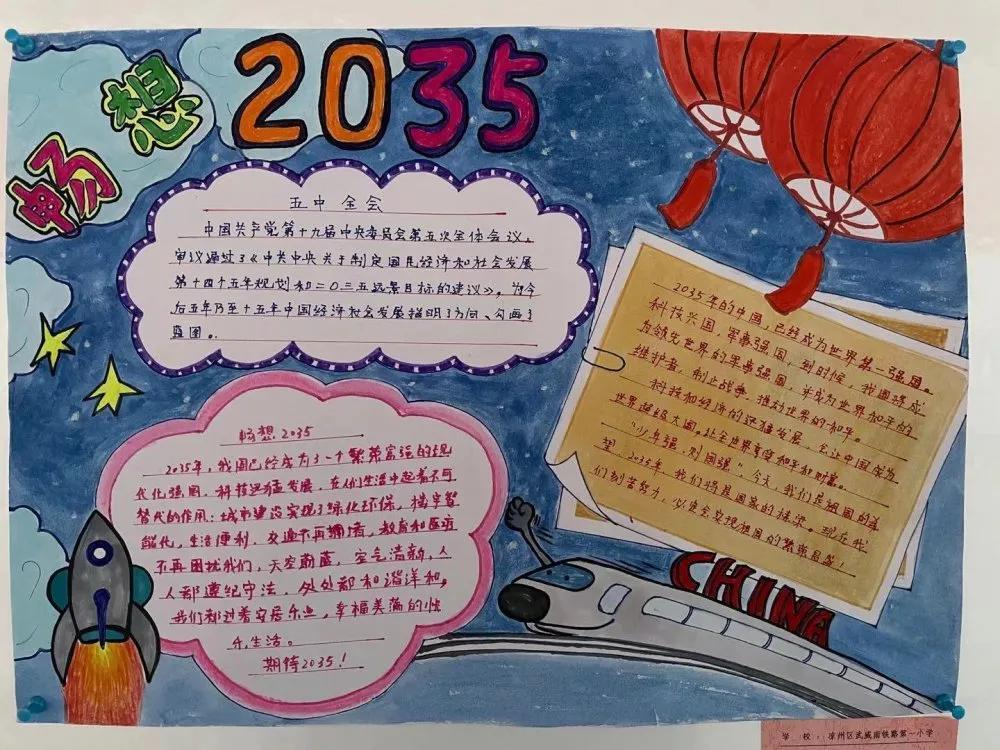 畅想
2035
五中全会
中国共产党第十九届中央委员会第五次全体会议,
审议通过了《中共中央关于制定国民经济和社会发展
第十四个五年规划和二〇三五远景目标的建议》,为今
后五年乃至十五年中国经济社会发展指明了方向、勾画了
蓝图。
畅想2035
2035年,我国已经成为了一个繁荣富强的现
代化强国,科技迅猛发展,在人们生活中起着不可
替代的作用:城市建设实现了绿化环保,楼宇智
能化,生活便利,交通不再拥堵,教育和医疗
不再困扰我们,天空蔚蓝,空气清新,人
人都遵纪守法,处处都和谐洋和,
我们都过着安居乐业,幸福美满的快
乐生活。
期待2035!
2035年的中国,已经成为世界第一强国。
科技兴国,军事强国,到时候,我国将成
为领先世界的军事强国,并成为世界和平的
维护者,制止战争,推动世界的和平。
科技和经济的迅猛发展,会让中国成为
世界超级大国。让全世界享受和平和财富。
“少年强,则国强”今天,我们是祖国的希
望,2035年,我们将是国家的栋梁。现在我
们刻苦努力,必定会实现祖国的繁荣昌盛!
CHINA
学 校:凉州区武威南铁路第一小学